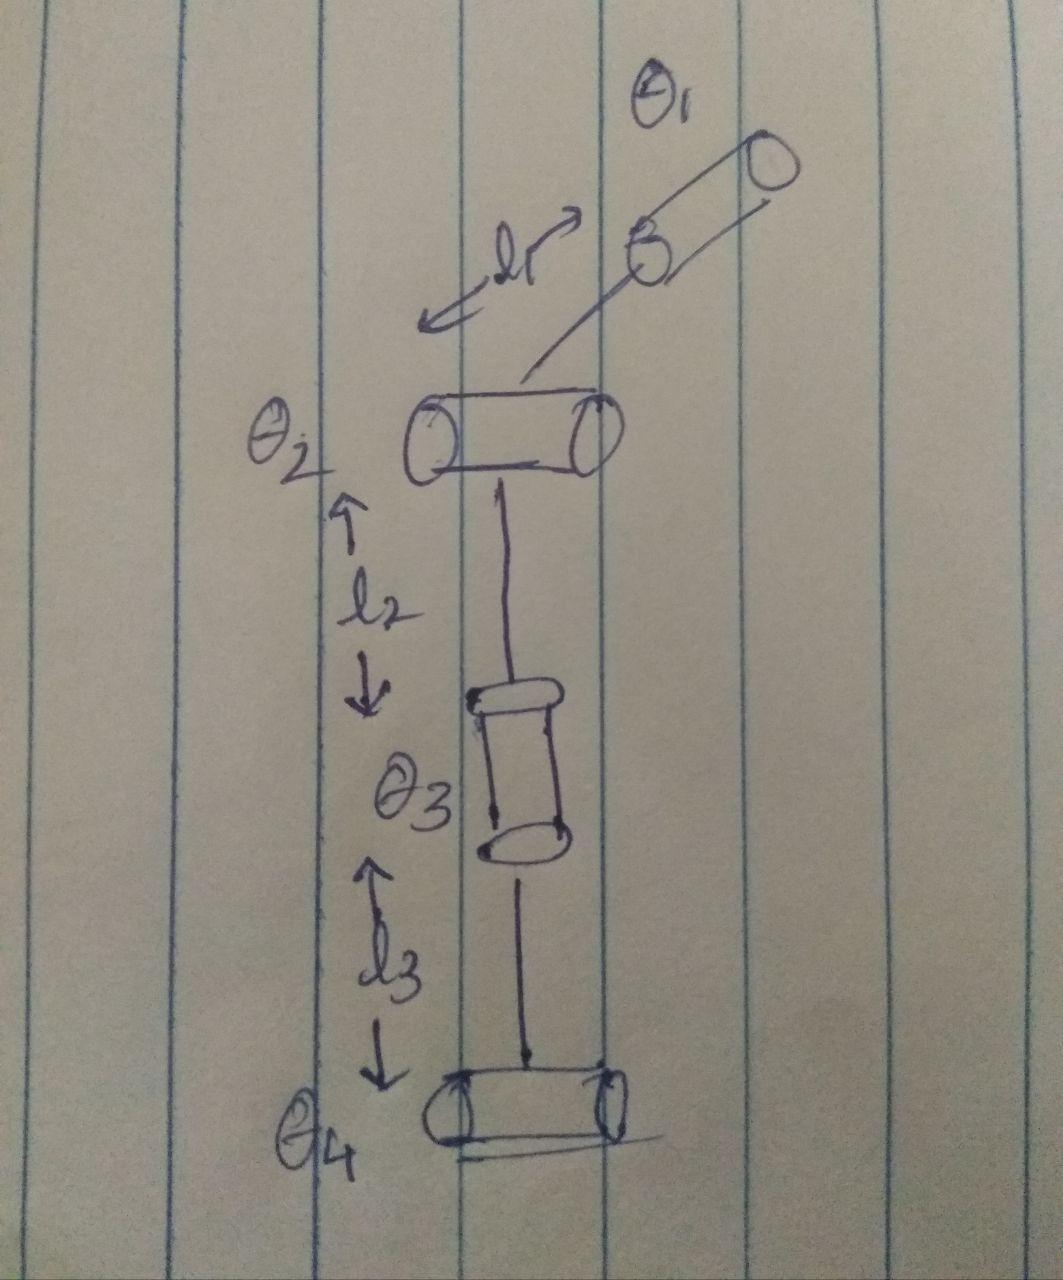 θ1
l1
θ2
l2
θ3
l3
θ4